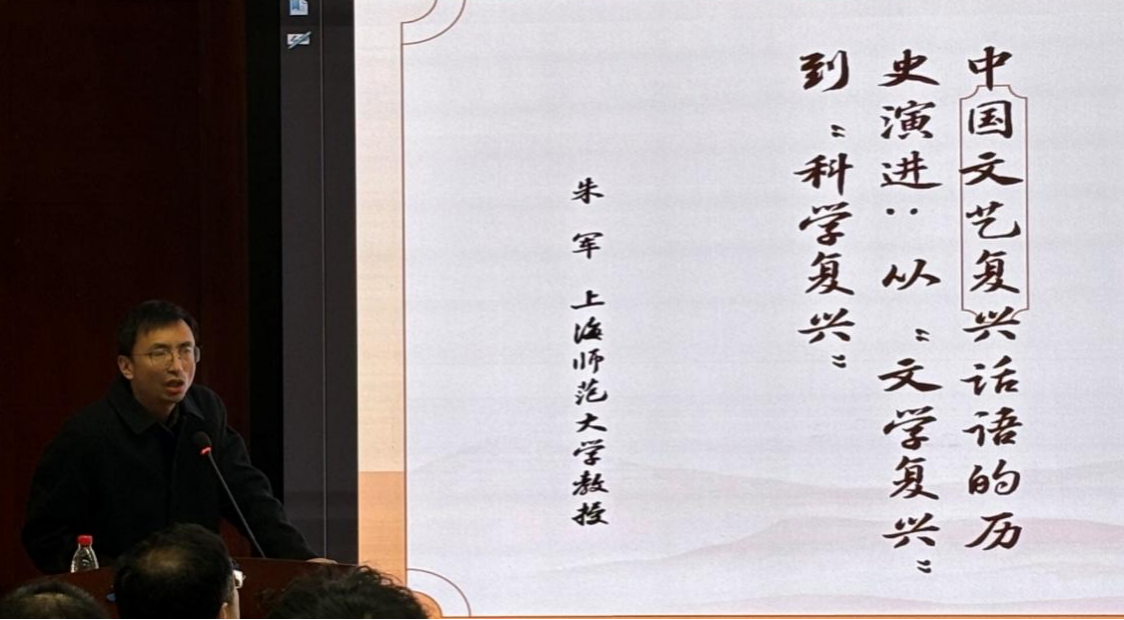 中国文艺复兴话语的历
史演进：从“文学复兴”
到“科学复兴”
朱军 上海师范大学教授